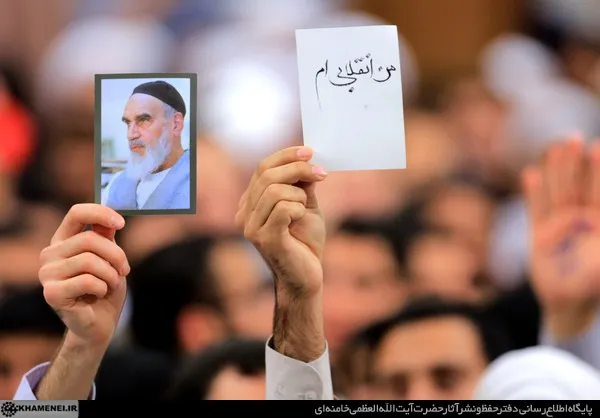 من انقلابی ام
KHAMENEI.IR
پایگاه اطلاع رسانی دفتر حفظ و نشر آثار حضرت آیت الله العظمی خامنه ای